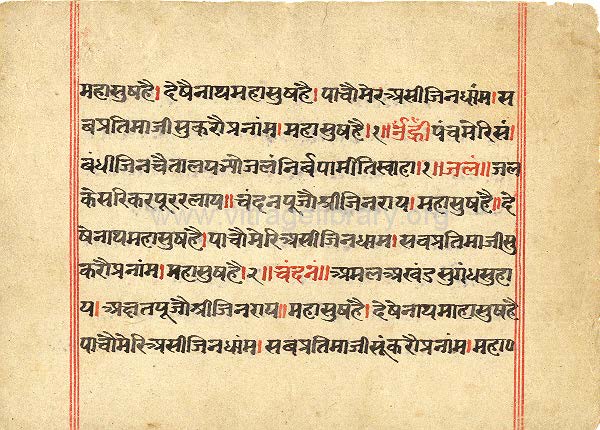 महासुषहै। देषैनाथमहासुषहै। पाचौमेरअसीजिनधांम। स
बप्रतिमाजीसुकरौप्रनांम। महासुषहै। १॥ र्नुह्रीं पंचमेरिसं
बंधीजिनचैतालयभ्यौजलंनिर्बपामीतिस्वाहा। १॥ जलं॥ जल
केसरिकरपूररलाय॥ चंदनपूजौश्रीजिनराय। महासुषहै॥ दे
षेनाथमहासुषहै। पाचौमेरिअसीजिनधाम। सबप्रतिमाजीसु
करौप्रनांम। महासुषहै। २॥ चंदनं॥ अमलअखंडसुगंधसुहा
य। अक्षतपूजौश्रीजिनराय॥ महासुषहै। देषेनाथमाहासुषहै
पाचौमेरिअसीजिनधांम। सबप्रतिमाजीसूंकरौप्रनांम। महा०
www.vitragelibrary.org